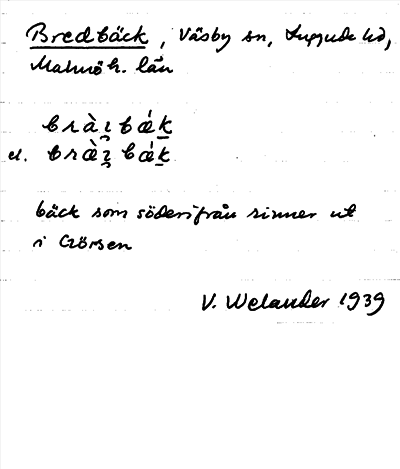 Bredbäck, Väsby sn, Luggude hd,
Malmöh. län
bràı̯bák
el. bræ̀ı̯bák
bäck som söderifrån rinner ut
i Görsen
V. Welander 1939